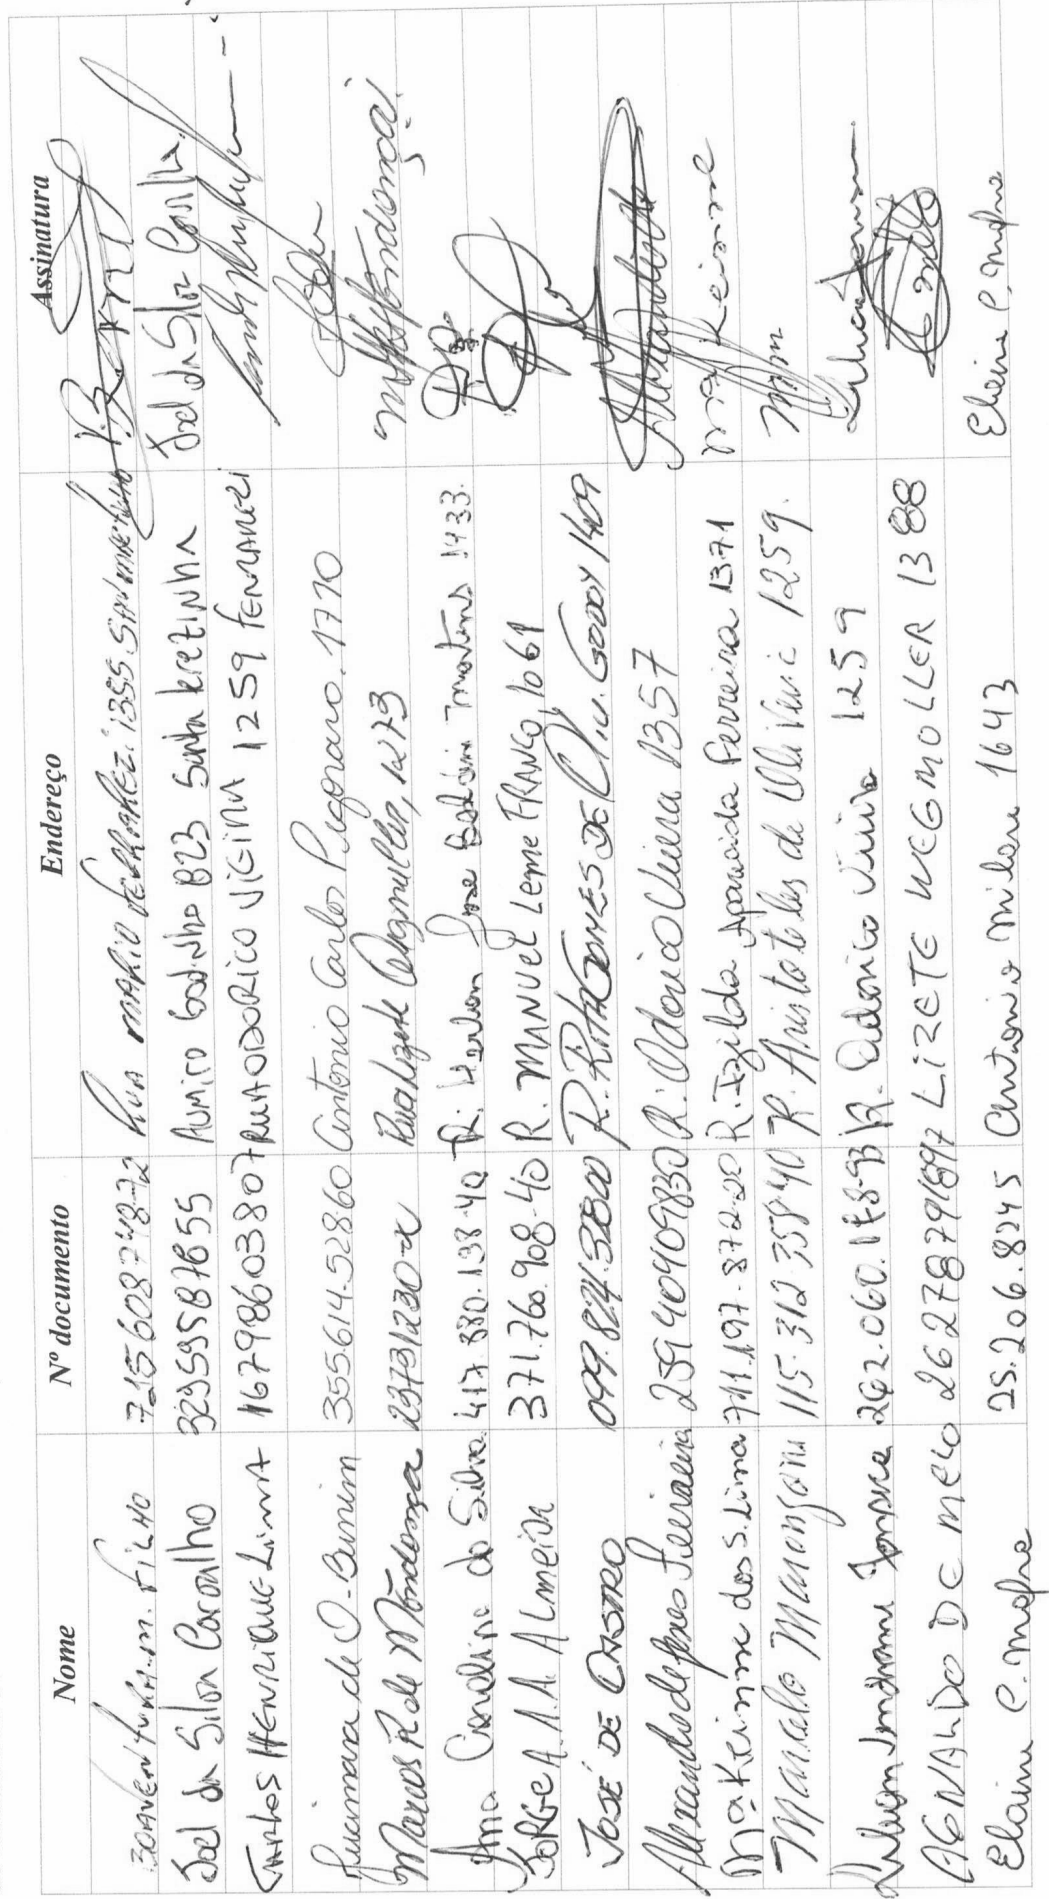 Nome Nº documento Endereço Assinatura
BOAVENTURA.M. FILHO 7-15608748-72 Rua MARIO 1355
Joel da Silva Carvalho 32959587655 AUMIRO Godinho 823 Santa terezinha Joel da Silva Carvalho
CARLOS HENRIQUE LIMA 16798603807 RUA ODORICO VIEIRA 1259
Jucimara de O. Bonim 355.614.528 60 Antonio Carlos Pigonaro. 1770
Marcos R de Mendonça 23731230-x Rua lizete Wegmuller, 1273
Ana Carolina da Silva. 417.880.138-40 R. Herlon Jose Martins 1433.
JORGE A. A. ALmeida 371.760.908-40 R. MANUEL Leme FRANCO, 1061
JOSÉ DE CASTRO 099.824.32800 R. RITA GOMES DE Oliv. GODOY 1409
Alexandre Ferreira 25940409830 R: Odorico Vieira 1357
Mª Keinne dos S. Lima 711.197.872-20 R. Izilda Aparecida Ferreira 1371 Mª Keinne
Marcelo Manongani 115.312.358 40 R. Aristoteles de Oliveira 1259.
262.060.178-93 R. Odorico Vieira 1259
AGNALDO DE MELO 26278791897 LIZETE WEGMOLLER 1388
Elaine C. Mofre 25.206.8245 Antonio Milani 1643 Elaine C. Mofre